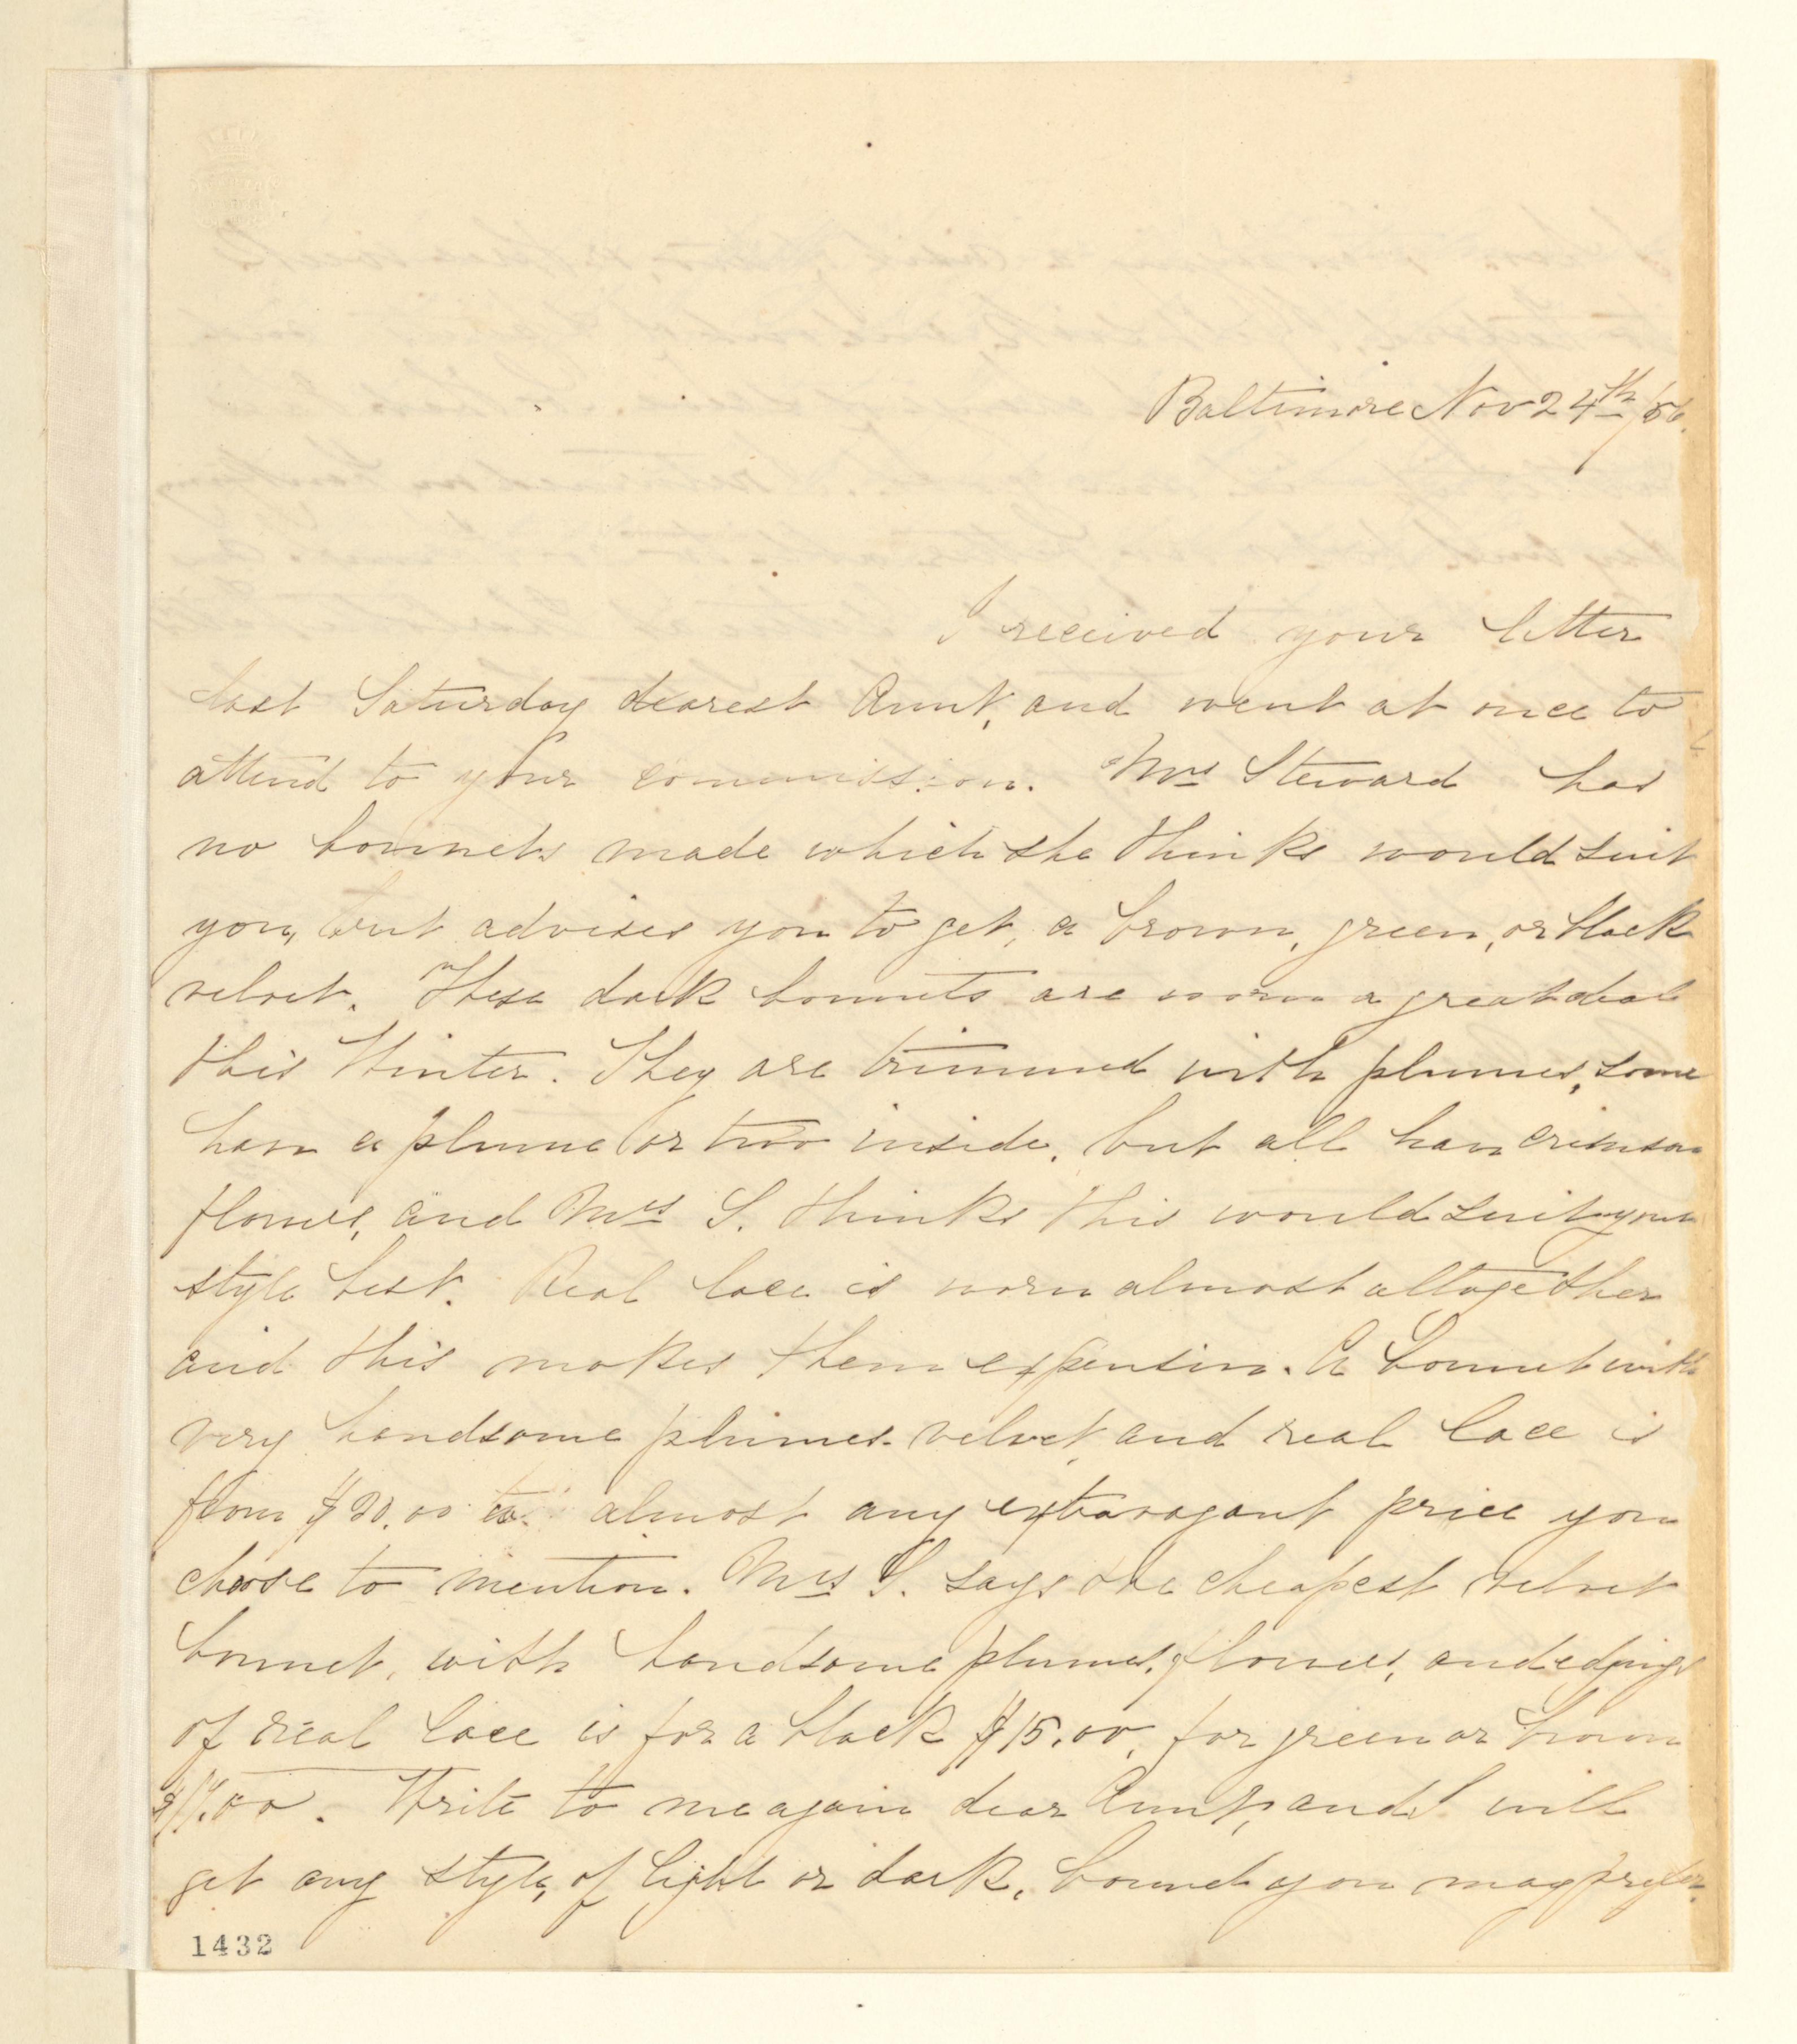 Baltimore Nov 24th/56.
I received your letter
last Saturday dearest Aunt, and went at once to
attend to your commission. Mrs Steward has
no bonnets made which she thinks would suit
you, but advises you to get, a brown, green, or black
velvet. These dark bonnets are worn a great deal
this Winter. They are trimmed with plumes, some
have a plume or two inside, but all have crimson
flowers, and Mrs S. thinks this would suit your
style best. Real lace is worn almost altogether
and this makes them expensive. A bonnet with
very handsome plumes, velvet, and real lace is
from $20.00 to almost any extravagant price you
choose to mention. Mrs S. says the cheapest velvet
bonnet, with handsome plumes, flowers, and edgings
of real lace is for a black $15.00, for green or brown
$17.00. Write to me again dear Aunt, and I will
get any style, of light or dark, bonnet you may prefer.
1432